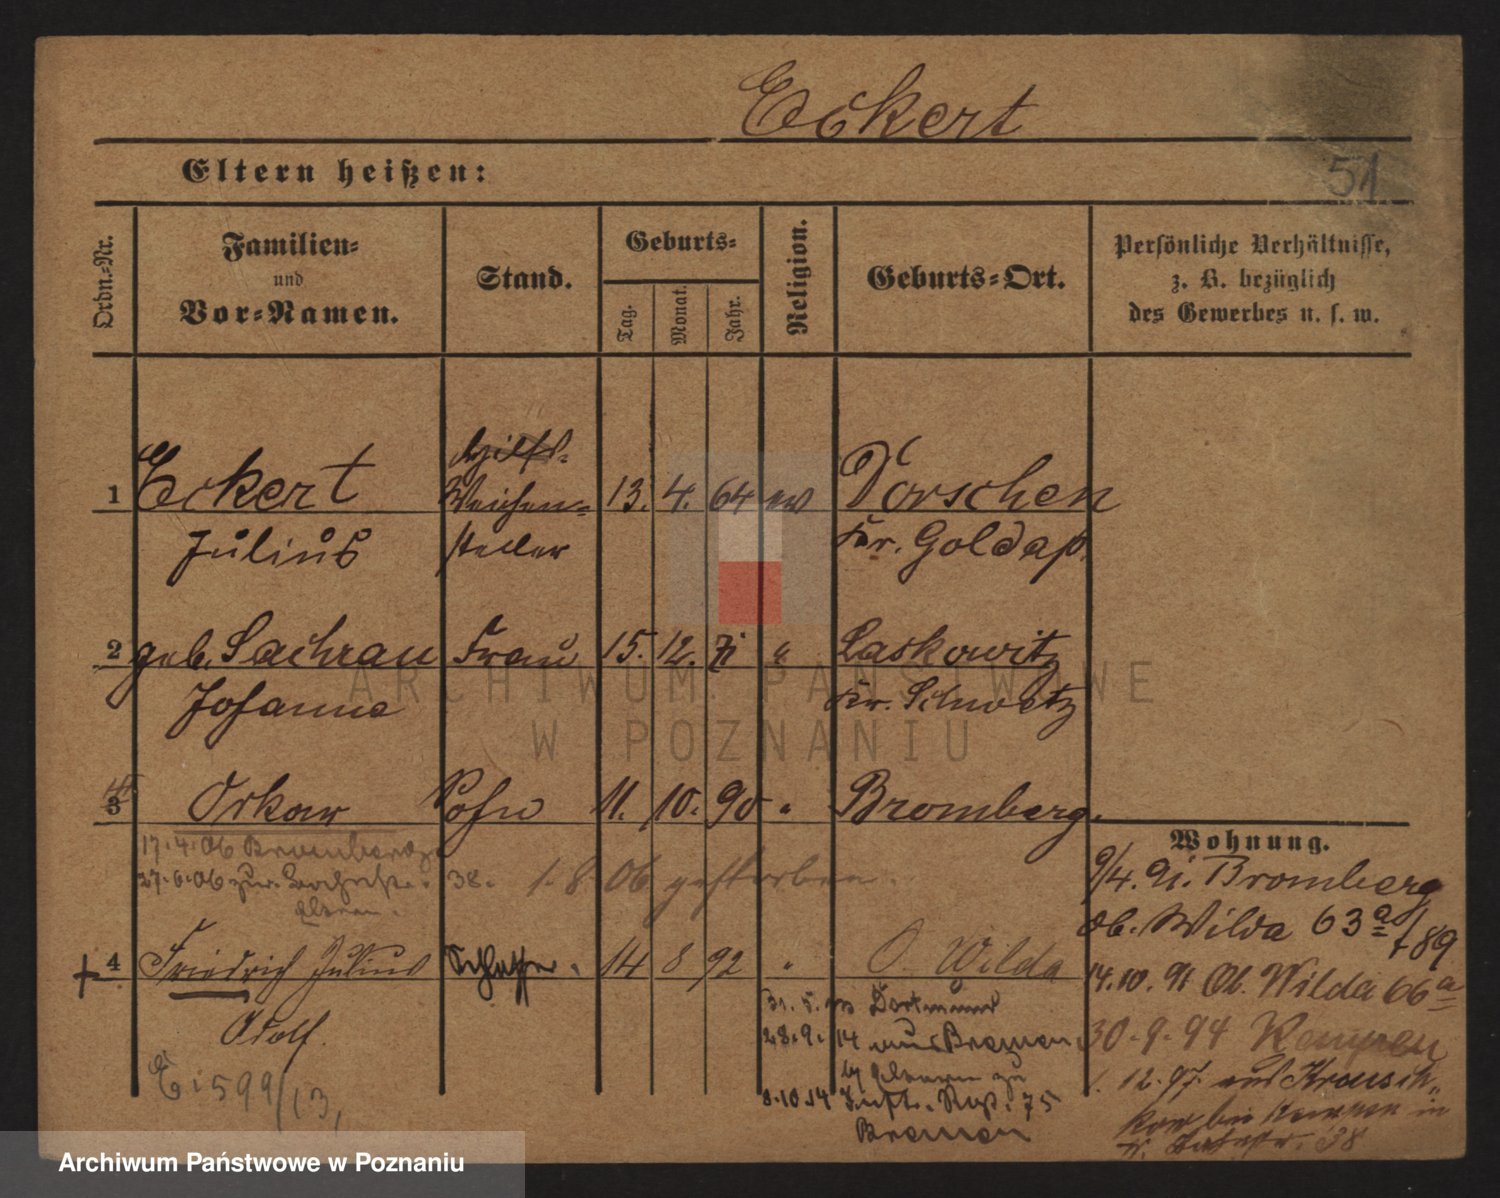 Eckert
51
Eltern heißen:
Ordn.-Nr.
Familien-
und
Vor-Namen.
Stand.
Geburts-
Tag.
Monat.
Jahr.
Religion.
Geburts-Ort.
Persönliche Verhältnisse,
z. B. bezüglich
des Gewerbes u. s. w.
1 Eckert Hilfs- Weichen- 13. 4. 64 ev Dorschen
Julius steller Kr. Goldap.
2 geb. Sachrau Frau 15. 12. 71 " Laskowitz
Johanne Kr. Schwetz
3 Oskar Sohn 11. 10. 90 " Bromberg.
17.4.06 Bromberg
27.6.06 zur. 38. 1.8.06 gestorben.
Eltern.
4 Friedrich Julius Schlosser. 14 8 92 " O. Wilda
Adolf.
31.5. Dortmund
28.9.14 aus Bremen
Eltern zu
8.10.14 75
Bremen
E. 599/13,
Wohnung.
9/4. 91. Bromberg
Ob. Wilda 63a/89
14.10.91 Ob. Wilda 66a
30.9.94 Kempen
1.12.97. aus Krausch-
kow bei Kempen in
38
ARCHIWUM PAŃSTWOWE
W POZNANIU
Archiwum Państwowe w Poznaniu